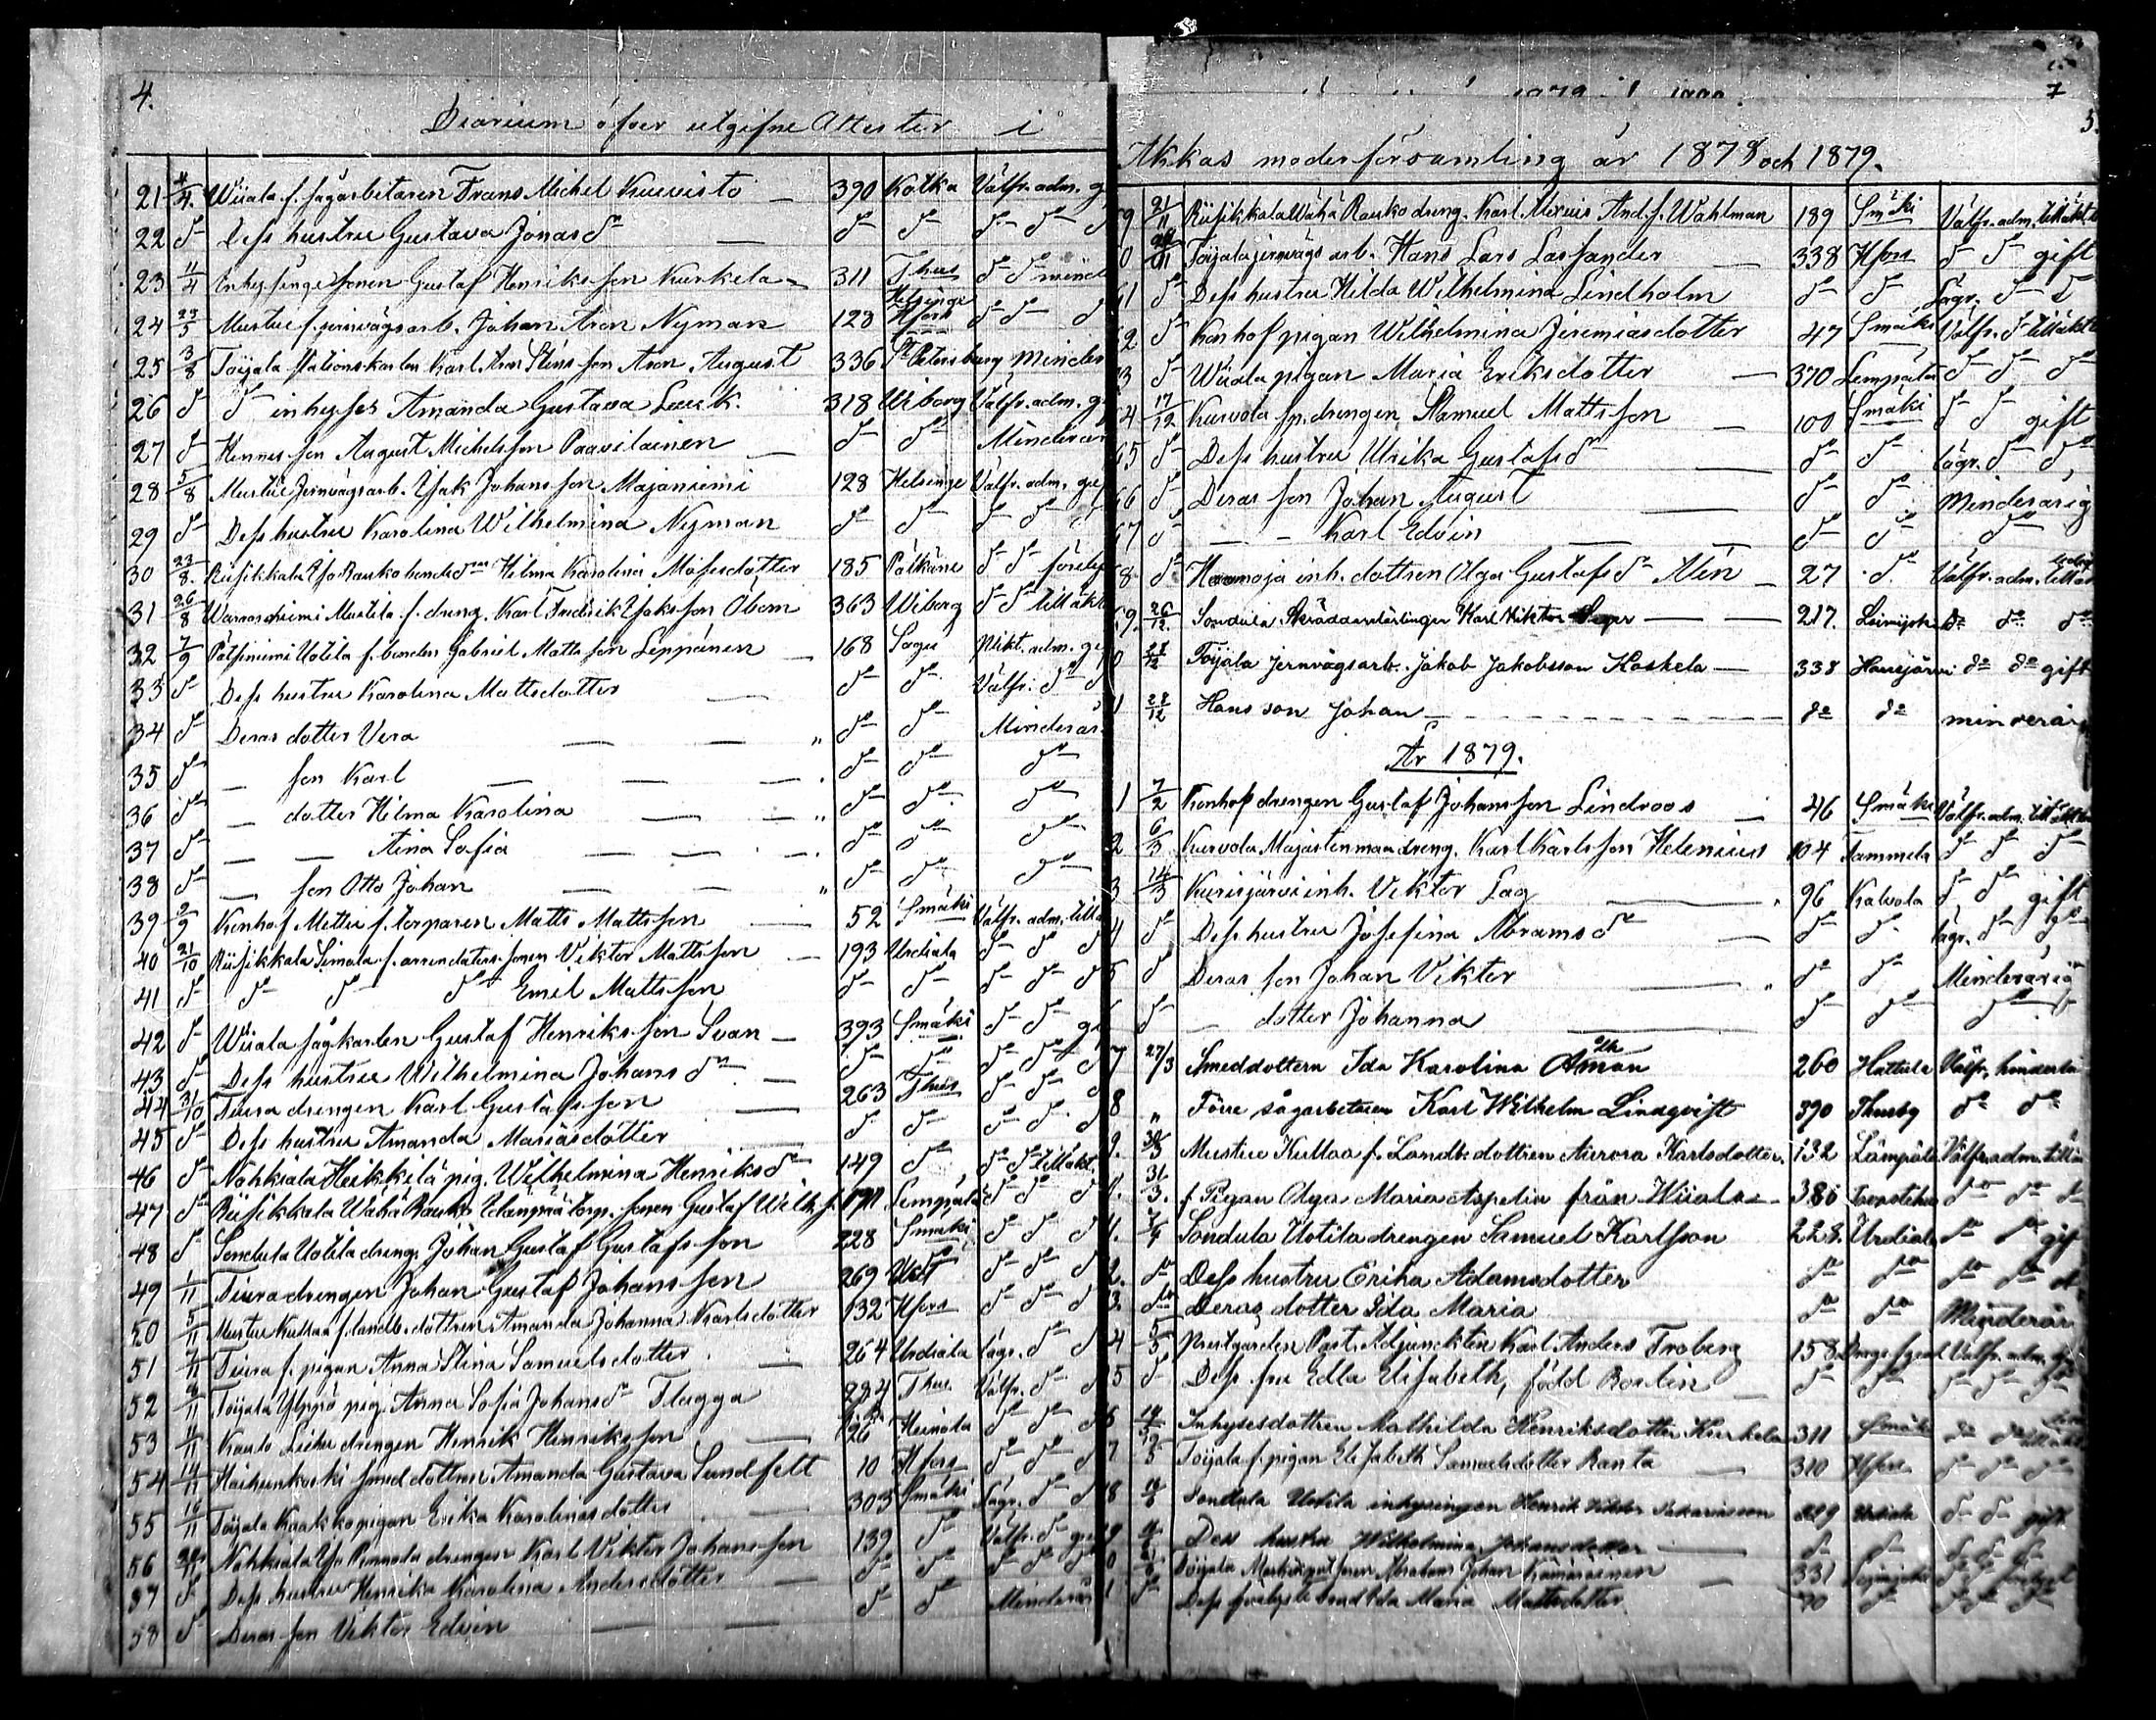 4.
Diarium öfver utgifne Attester i
21 4/4. Wiiala f. sågarbetaren Frans Michel Kuusisto — 390 Kotka Välfr. adm. g
22 do Dess hustru Gustava Jonas do — do do do do d
23 11/4 Inhysinge sonen Gustaf Henriksson Kurkela — 311 Thus do do mind
24 23/5 Mustue f. jernvägsarb. Johan Aron Nyman 128 Helsinge Hfors do do d
25 3/8 Toijala stationskarlen Karl Aron Stens son Aron August 336 St Petersburg Minder
26 do do inhyses Amanda Gustava Leuk. 318 Wiborg Välfr. adm. g
27 do Hennes son August Michelsson Paavilainen — do do Minderår
28 5/8 Mustue Jernvägsarb. Isak Johansson Majaniemi 128 Helsinge Välfr. adm. gif
29 do Dess hustru Karolina Wilhelmina Nyman do do do do
30 23/8. Riisikkala Yso Rauko bonded:ren Hilma Karolina Mosesdotter 185 Pälkäne do do förelys
31 26/8 Mustila f. dreng. Karl Fredrik Isaksson Öbom 363 Wiborg do do tillåkt
32 7/9 Uotila f. bonden Gabriel Mattsson Leppänen — 168 Sagu Nikt. adm. gi
33 do Dess hustru Karolina Mattsdotter — do do Välfr. do d
34 do Deras dotter Vera — — " do do Minderår
35 do — son Karl — — — do do do
36 do — dotter Hilma Karolina — — " do do do
37 do — — Aina Sofia — — — do do do
38 do — son Otto Johan — — " do do do
39 2/9 Konho f. torparen Matts Mattsson — 52 Smäki Välfr. adm. tillå
40 21/10 Riisikkala Simola f. arrendators sonen Viktor Mattsson — 193 Urdiala do do d
41 do do do do Emil Mattsson do do do do d
42 do Wiiala sågkarlen Gustaf Henriksson Svan — 393 Smäki do do gi
43 do Dess hustru Wilhelmina Johans do — do do do do d
44 31/10 Tiura drengen Karl Gustafsson — 263 Thus do do d
45 do Dess hustru Amanda Mariasdotter do do do do d
46 do Nahkiala Heikkilä pig. Wilhelmina Henriks do 149 do do do tillåkt.
47 do Riisikkala Wähä Rauko torp. sonen Gustaf Wilh. f. 191 Lempäla do do d
48 do Sondula Uotila dreng. Johan Gustaf Gustafsson 228 Smäki do do d
49 1/11 Tiura drengen Johan Gustaf Johansson 269 do do d
50 5/11 Mustue Kullaa f. landb. dottren Amanda Johanna Karlsdotter 132 Hfors do do d
51 7/11 Tiura f. pigan Anna Stina Samuelsdotter — 264 Urdiala lägr. do d
52 8/11 Toijala Ylppö pig. Anna Sofia Johans do Flagga 294 Thus. Välfr. do d
53 11/11 drengen Henrik Henriksson — 26 Heinola do do d
54 14/11 smed dottren Amanda Gustava Sundfelt 10 Hfors do do d
55 16/11 Toijala Kaakko pigan Erika Karolinasdotter 303 Smäki lägr. do d
56 Nahkiala drengen Karl Viktor Johansson 139 do Välfr. do gi
57 do Dess hustru Henrika Karolina Andersdotter — do do do do
58 do Deras son Viktor Edvin — — do do Minderår
7
5.
Akkas moderförsamling år 1878 och 1879.
9 21/11 Riisikkala Wähä Rauko dreng. Karl And. f. Wahlman 189 Smäki Välfr. adm. tillåkt
0 Toijala jernvägs arb. Hans Lars Lassander — 338 Hfors do do gift
61 do Dess hustru Hilda Wilhelmina Lindholm do do Lägr. do do
62 do Konho f pigan Wilhelmina Jeremiasdotter 47 Smäki Välfr. do tillåkt
63 do Wiiala pigan Maria Eriksdotter — 370 Lempäla do do do
64 17/12 Kurvola drengen Samuel Mattsson — 100 Smäki do do gift
65 do Dess hustru Ulrika Gustafs do — do do lägr. do do
66 do Deras son Johan August — do do Minderårig
67 do — — Karl Edvin — — do do do
68 do inh. dottren Olga Gustafs do Alén — 27 do Välfr. adm.
69. 26/12. Sondula Skräddarelärlingen Karl Viktor — — 217. do do do
0 28/12 Toijala Jernvägsarb. Jakob Jakobsson Koskela — 338 Hausjärvi do do gift
1 28/12 Hans son Johan — — — do do minderår
År 1879.
1 7/2 Konho f drengen Gustaf Johansson Lindroos — 46 Smäki Välfr. adm.
2 6/3 Kurvola dreng. Karl Karlsson Helenius 104 Tammela do do do
3 14/3 Kurisjärvi inh. Viktor Lag — 96 Kalvola do do gift
4 do Dess hustru Josefina Abrams do — do do lägr. do do
5 do Deras son Johan Viktor — do do Minderårig
do — dotter Johanna — do do do
7 27/3 Smeddottern Ida Karolina Åman 260 Hattula Välfr. hinderlö
8 " Förre sågarbetaren Karl Wilhelm Lindqvist 390 Thusby do do
9. 30/3 Mustue Kullaa f. Landb. dottren Aurora Karlsdotter. 132 Lämpäla Välfr. adm.
31/3. f. Pigan Olga Maria Aspelin från Wiiala — 386 do do do
7/4 Sondula Uotila drengen Samuel Karlsson 228. Urdiala do do gif
2. do Dess hustru Erika Adamsdotter do do do do
3 do Deras dotter Ida Maria do do Minderår
4 5/5 Prestgården Past. Adjunkten Karl Anders Froberg 158 Välfr. adm.
5 do Dess fru Edla Elisabeth, född Borlin — do do do do do
6 Inhysesdottren Mathilda Henriksdotter Kurkela 311 Smäki do do
7 Toijala f. pigan Elisabeth Samuelsdotter Ranta — 310 Hfors do do do
18 Sondula Uotila inhysingen Henrik Viktor 229 Urdiala do do gift
Dess hustru Wilhelmina Johansdotter — do do do do do
Toijala sonen Abraham Johan Kämäräinen — 331 do do
1 do Dess förelyste brud Ida Maria Mattsdotter 70 do do do do